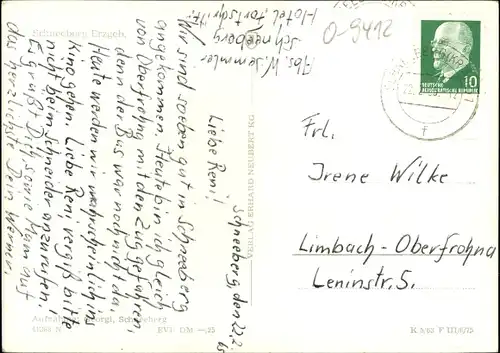 Schneeberg Erzgeb.
Abs. W. Semmler
Schneeberg
Hotel "Fortschritt"
O-9412
DEUTSCHE
DEMOKRATISCHE REPUBLIK
10
f
Schneeberg, den 22.2.65
Liebe Reni!
Wir sind soeben gut in Schneeberg
angekommen. Heute bin ich gleich
von Oberfrohna mit den Zug gefahren,
denn der Bus war noch nicht da.
Heute werden wir wahrscheinlich ins
Kino gehen. Liebe Reni vergiß bitte
nicht beim Schneider anzurufen!
Es grüßt Dich sowie Mam auf
das herzlichste Dein Werner.
Frl.
Irene Wilke
Limbach-Oberfrohna
Leninstr. 5.
VERLAG ERHARD NEUBERT KG
Aufnahme: Georgi, Schneeberg
EVP DM —,25